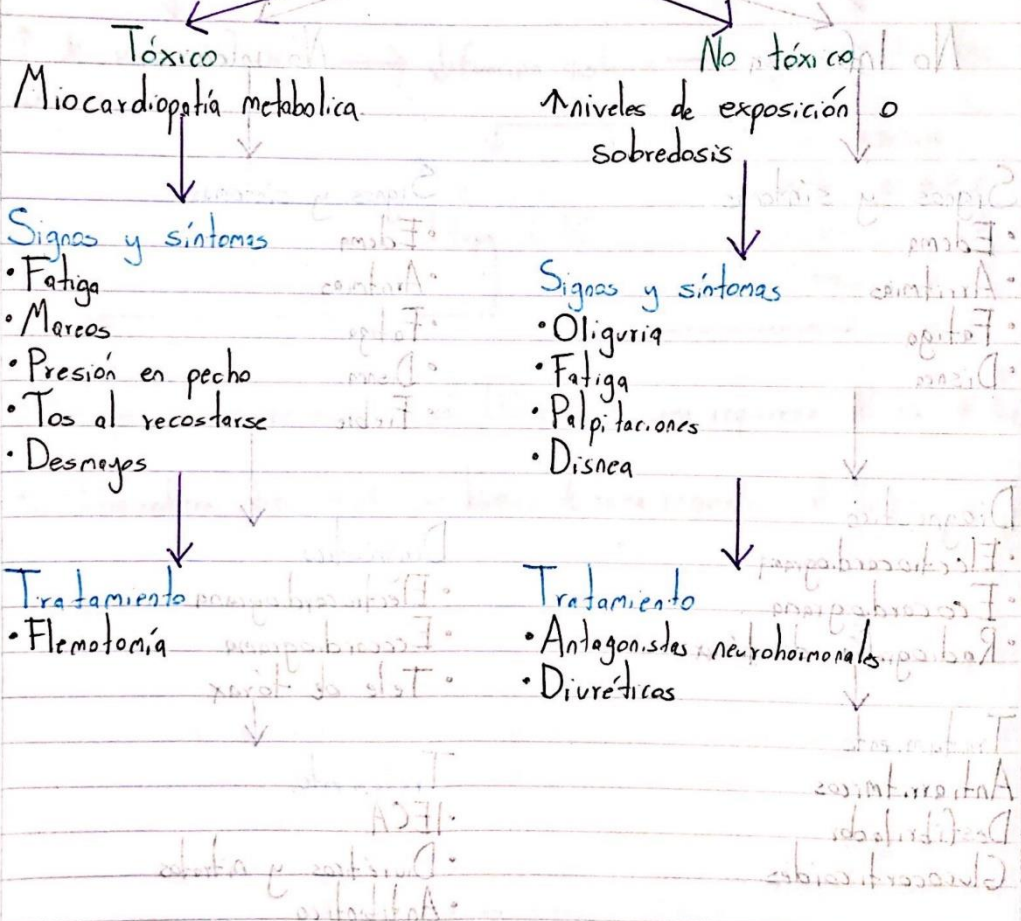 Tóxico
Miocardiopatía metabolica.
Signos y síntomas
• Fatiga
• Mareos
• Presión en pecho
• Tos al recostarse
• Desmayos
Tratamiento
• Flemotomía
No tóxico
↑niveles de exposición o
sobredosis
Signos y síntomas
• Oliguria
• Fatiga
• Palpitaciones
• Disnea
Tratamiento
• Antagonistas neurohormonales
• Diuréticos